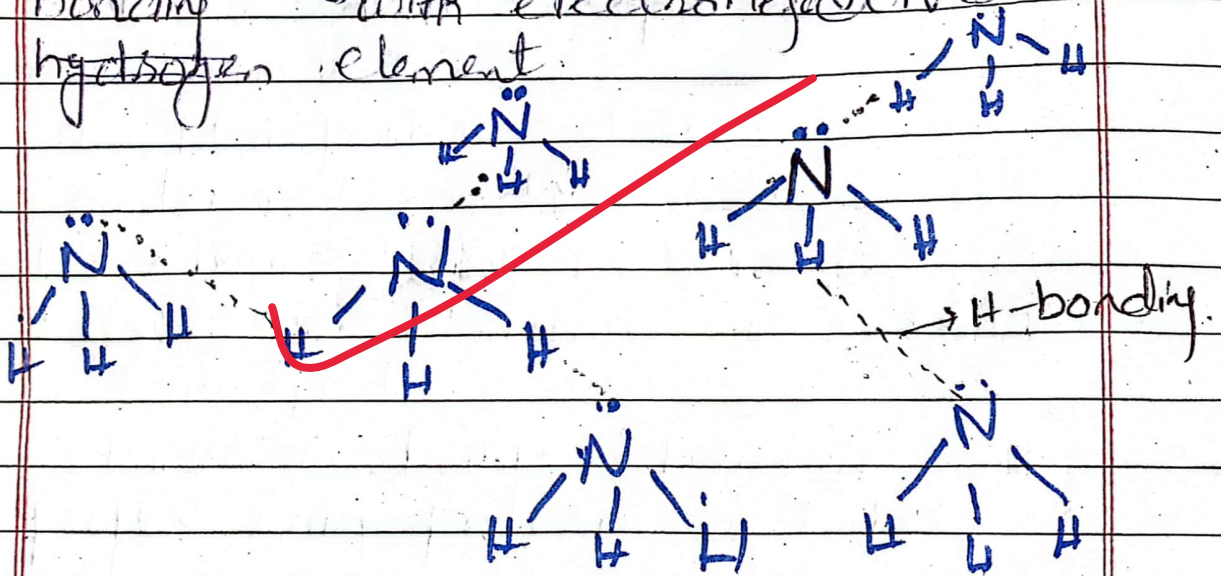 bonding with electronegative
hydrogen element.
N H H H
N H H H
N H H H
N H H H
N H H H
→ H-bonding.
N H H H
N H H H